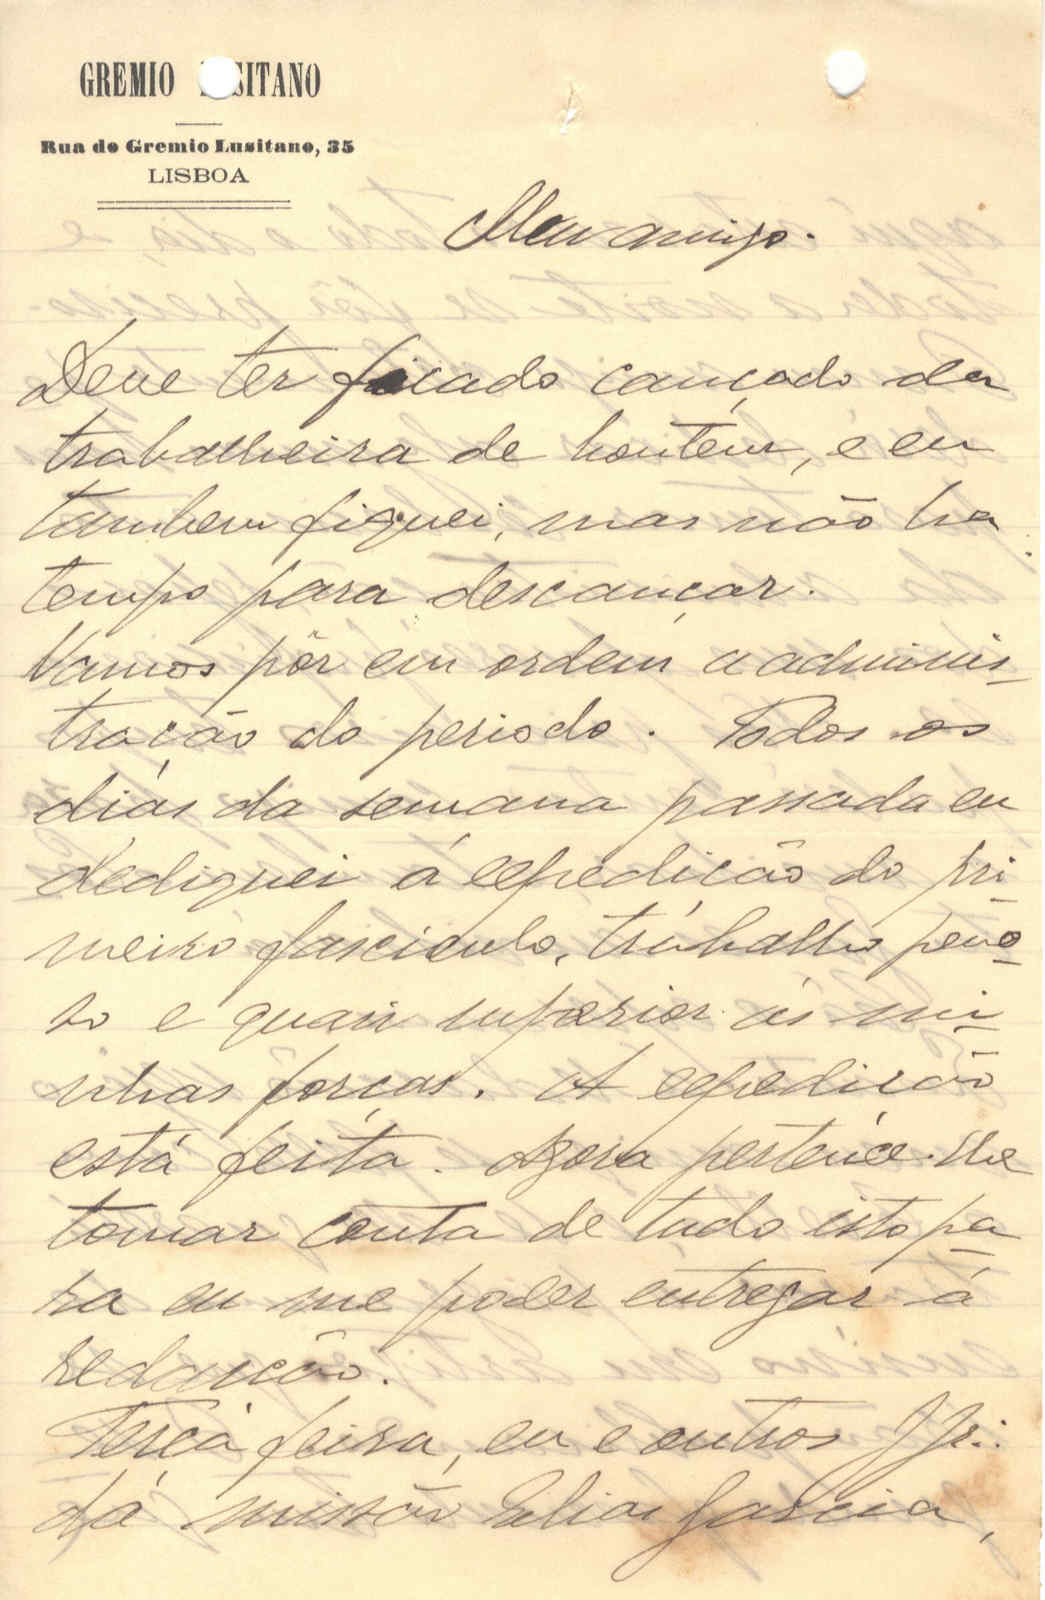 GREMIO LUSITANO
Rua do Gremio Lusitano, 35
LISBOA
Meu amigo.
Deve ter ficado cançado da
trabalheira de hontem, e eu
tambem fiquei, mas não ha
tempo para descançar.
Vamos pôr em ordem a adminis-
tração do periodo. Todos os
dias da semana passada eu
dediquei á expedição do pri-
meiro fasciculo, trabalho peno-
so e quasi superior ás mi-
nhas forças. A expedição
está feita. Agora pertence-lhe
tomar conta de tudo isto pa-
ra eu me poder entregar á
redacção.
Terça feira, eu e outros
da missão Elias Garcia,